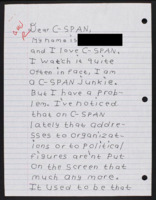 Dear C-SPAN,
My name is
and I love C-SPAN.
I watch it quite
often in fact, I am
a C-SPAN Junkie.
But I have a prob-
lem. I've noticed
that on C-SPAN
lately that addr-
esses to organizat-
ions or to Political
Figures aren't put
on the screen that
much any more.
It used to be that